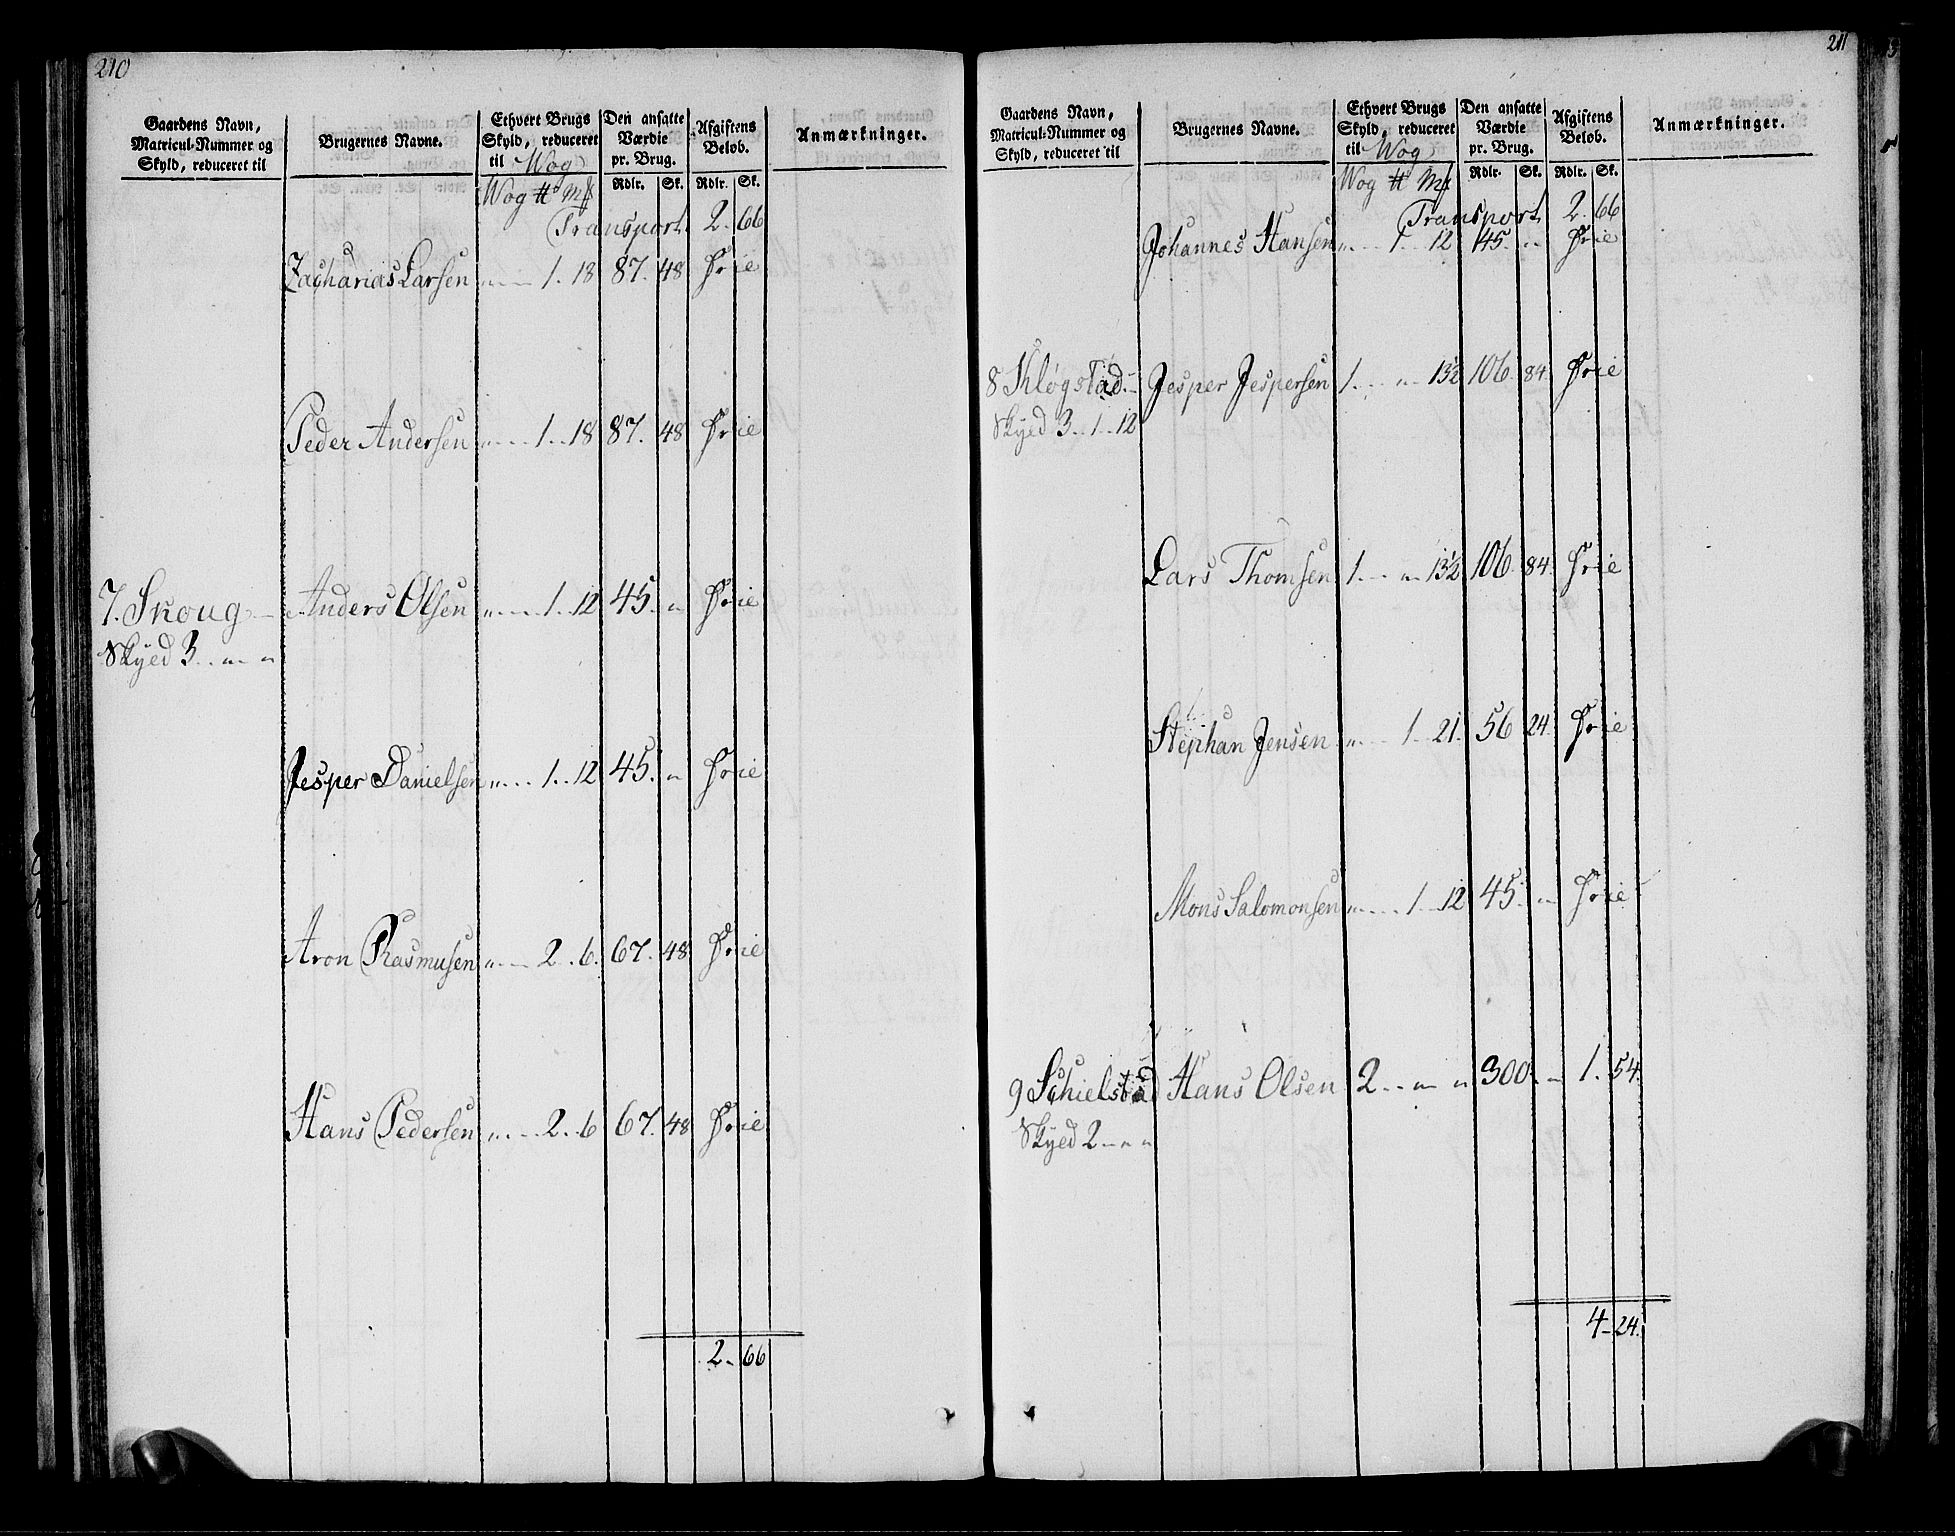 210
Gaardens Navn, Matricul-Nummer og Skyld, reduceret til
Brugernes Navne.
Ethvert Brugs Skyld, reduceret til Wog
Den ansatte Værdie pr. Brug.
Afgiftens Beløb.
Anmærkninger.
Wog ℔ Mk Rdlr. Sk. Rdlr. Sk.
Transport 2. 66
Zacharias Larsen " 1. 18 87. 48 Frie
Peder Andersen " 1. 18 87. 48 Frie
7. Skoug Anders Olsen " 1. 12 45. " Frie
Skyld 3 " "
Jesper Danielsen " 1. 12 45. " Frie
Aron Rasmusen " 2. 6. 67. 48 Frie
Hans Pedersen " 2. 6 67. 48 Frie
2. 66
211
Gaardens Navn, Matricul-Nummer og Skyld, reduceret til
Brugernes Navne.
Ethvert Brugs Skyld, reduceret til Wog
Den ansatte Værdie pr. Brug.
Afgiftens Beløb.
Anmærkninger.
Wog ℔ Mk Rdlr. Sk. Rdlr. Sk.
Transport 2. 66
Johannes Hansen " 1 12 45. " Frie
8 Kløgstad Jesper Jespersen 1 " 13½ 106. 84 Frie
Skyld 3 1 12
Lars Thomsen 1 " 13½ 106. 84. Frie
Stephan Jensen " 1 21. 56 24. Frie
Mons Salomonsen " 1 12 45. " Frie
9 Schielstad Hans Olsen 2 " " 300. " 1. 54.
Skyld 2 " "
4 24.